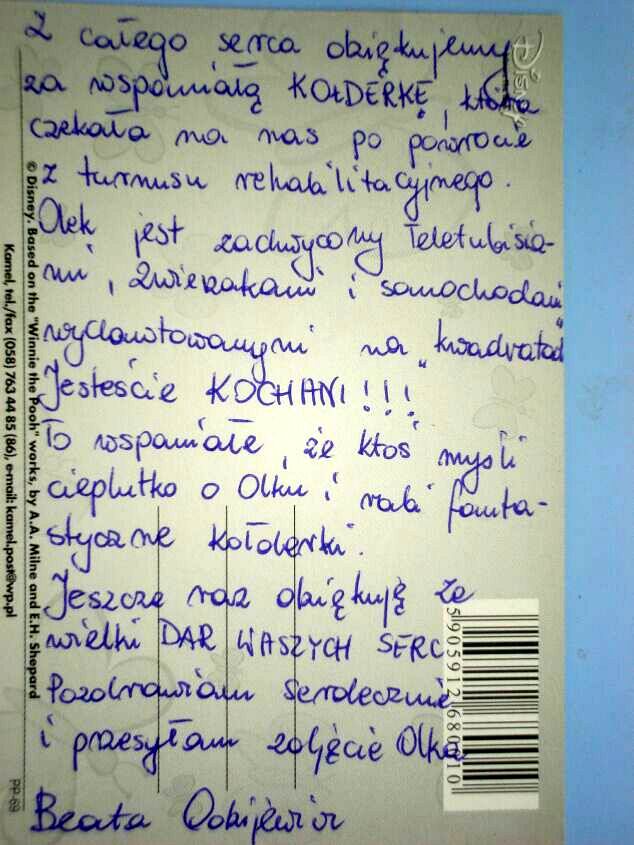 Z całego serca dziękujemy
za wspaniałą KOŁDERKĘ, która
czekała na nas po powrocie
z turnusu rehabilitacyjnego.
Olek jest zachwycony Teletubisia-
mi, zwierzakami i samochodami
wydawtowanymi na „kwadratach"
Jesteście KOCHANI!!!
To wspaniałe, że ktoś myśli
cieplutko o Olku i robi fanta-
styczne kołderki.
Jeszcze raz dziękuję za
wielki DAR WASZYCH SERC
Pozdrawiam serdecznie
i przesyłam zdjęcie Olka
Beata
Disney
© Disney. Based on the "Winnie the Pooh" works, by A.A. Milne and E.H. Shepard
Kamel, tel./fax (058) 763 44 85 (86), e-mail: kamel.post@wp.pl
PP-69